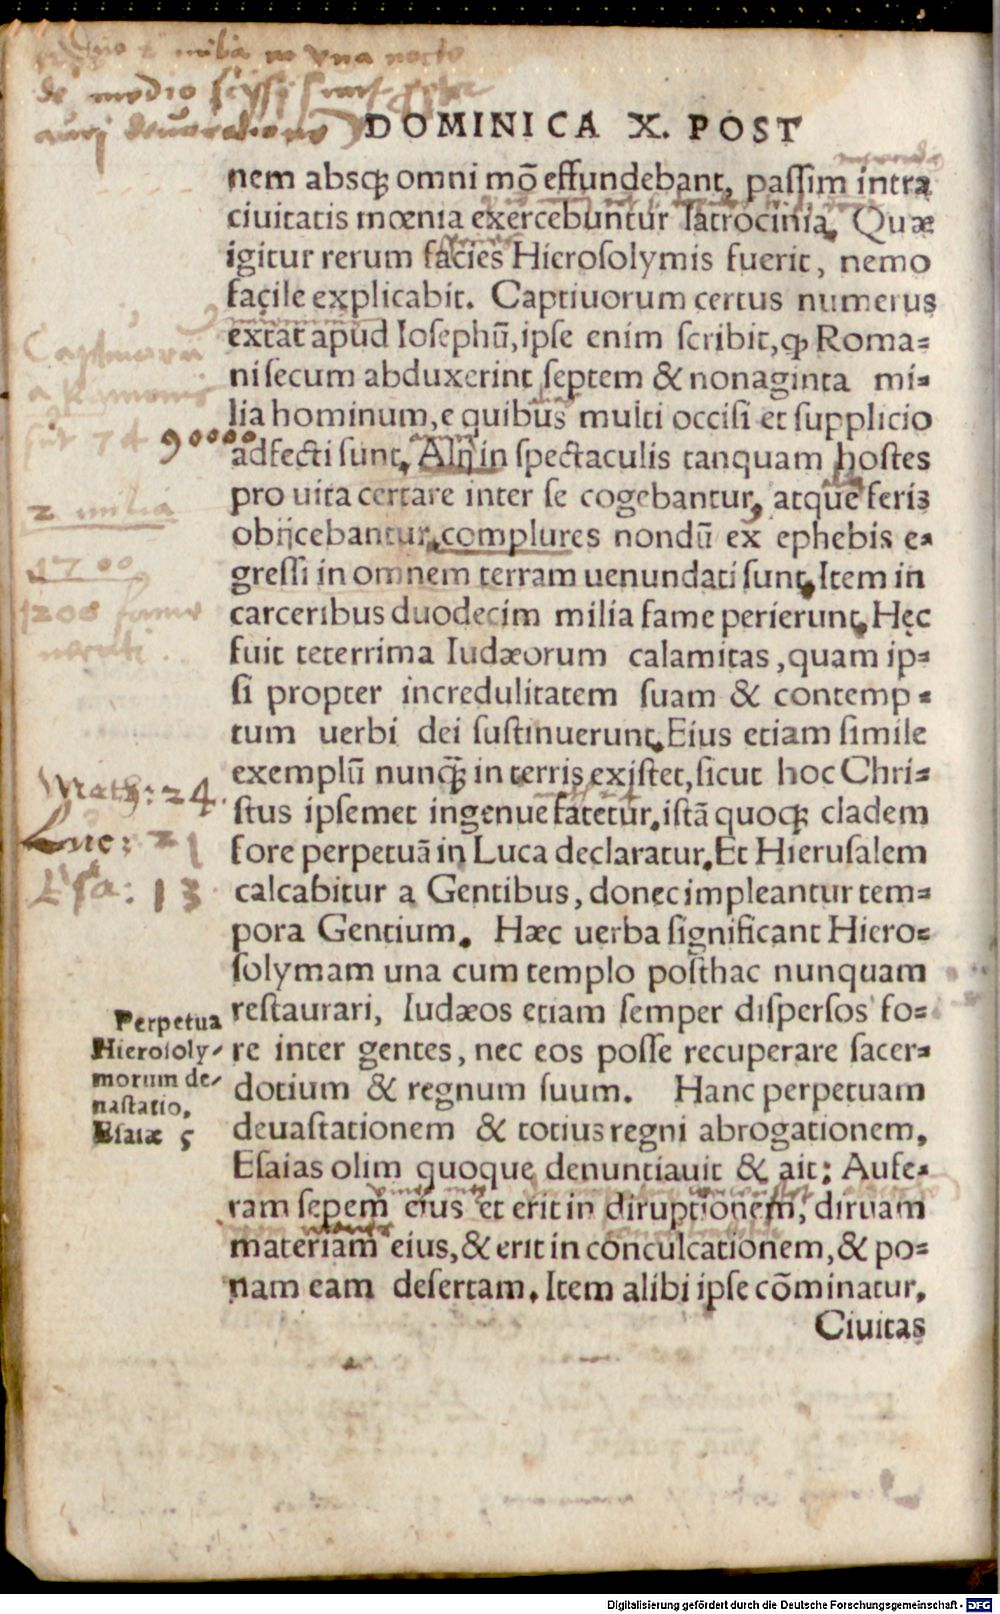 Duo milia in vna nocte
de medio scyssi sunt propter
auri deuorationem
DOMINICA X. POST
nem absq; omni mõ effundebant, passim intra
ciuitatis mœnia exercebuntur latrocinia. Quæ
igitur rerum facies Hierosolymis fuerit, nemo
facile explicabit. Captiuorum certus numerus
extat apud Iosephũ, ipse enim scribit, ꝙ Roma=
ni secum abduxerint septem & nonaginta mi=
lia hominum, e quibus multi occisi et supplicio
adfecti sunt. Alij in spectaculis tanquam hostes
pro uita certare inter se cogebantur, atque feris
obijcebantur, complures nondũ ex ephebis e=
gressi in omnem terram uenundati sunt. Item in
carceribus duodecim milia fame perierunt. Hęc
fuit teterrima Iudæorum calamitas, quam ip=
si propter incredulitatem suam & contemp=
tum uerbi dei sustinuerunt. Eius etiam simile
exemplũ nunq̃ in terris existet, sicut hoc Chri=
stus ipsemet ingenue fatetur. istã quoq; cladem
fore perpetuã in Luca declaratur. Et Hierusalem
calcabitur a Gentibus, donec impleantur tem=
pora Gentium. Hæc uerba significant Hiero=
solymam una cum templo posthac nunquam
restaurari, Iudæos etiam semper dispersos fo=
re inter gentes, nec eos posse recuperare sacer=
dotium & regnum suum. Hanc perpetuam
deuastationem & totius regni abrogationem,
Esaias olim quoque denuntiauit & ait: Aufe=
ram sepem eius et erit in diruptionem, diruam
materiam eius, & erit in conculcationem, & po=
nam eam desertam. Item alibi ipse cõminatur.
Ciuitas
Captiuorum
a Romanis
sũt 74 90000
2 milia
1700
1200 fame
necati
Math: 24.
Luc: 21
Esa: 13
Perpetua
Hierosoly-
morum de-
uastatio.
Esaiæ 5
Digitalisierung gefördert durch die Deutsche Forschungsgemeinschaft - DFG